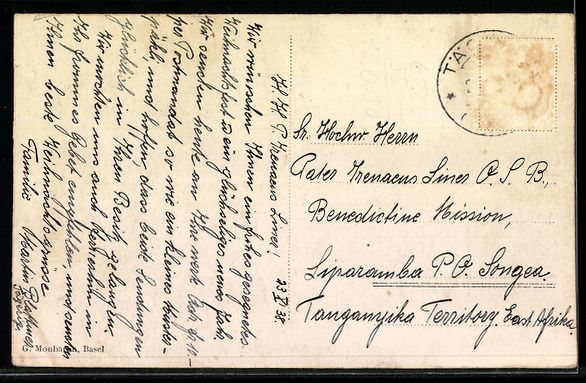 H. H. P. Irenaeus Liner!
Wir wünschen Ihnen ein frohes gesegnetes
Weihnachtsfest & ein glückseliges neues Jahr.
Wir senden heute an Ihre werte Adr.
per Postmandat so wie ein kleines Muster-
päckli, und hoffen dass beide Sendungen
glücklich in Ihren Besitz gelangen.
Wir möchten uns auch fernerhin in
Ihr frommes Gebet empfehlen und senden
Ihnen beste Weihnachtsgrüsse
Familie Martin
23. X. 38.
TÄG
Sr. Hochw Herrn
Pater Irenaeus Liner O. S. B.,
Benedictine Mission,
Liparamba P. O. Songea
Tanganyika Territory. East Afrika.
G. Monbaron, Basel